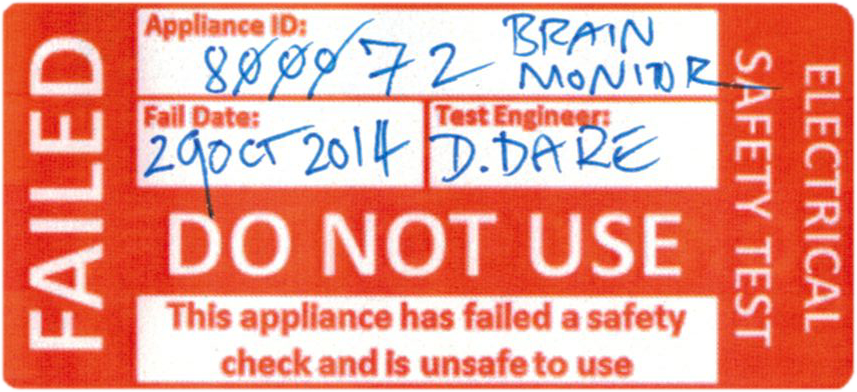 FAILED
Appliance ID:
800072 BRAIN
MONITOR
Fail Date:
29 OCT 2014
Test Engineer:
D. DARE
DO NOT USE
This appliance has failed a safety
check and is unsafe to use
ELECTRICAL
SAFETY TEST